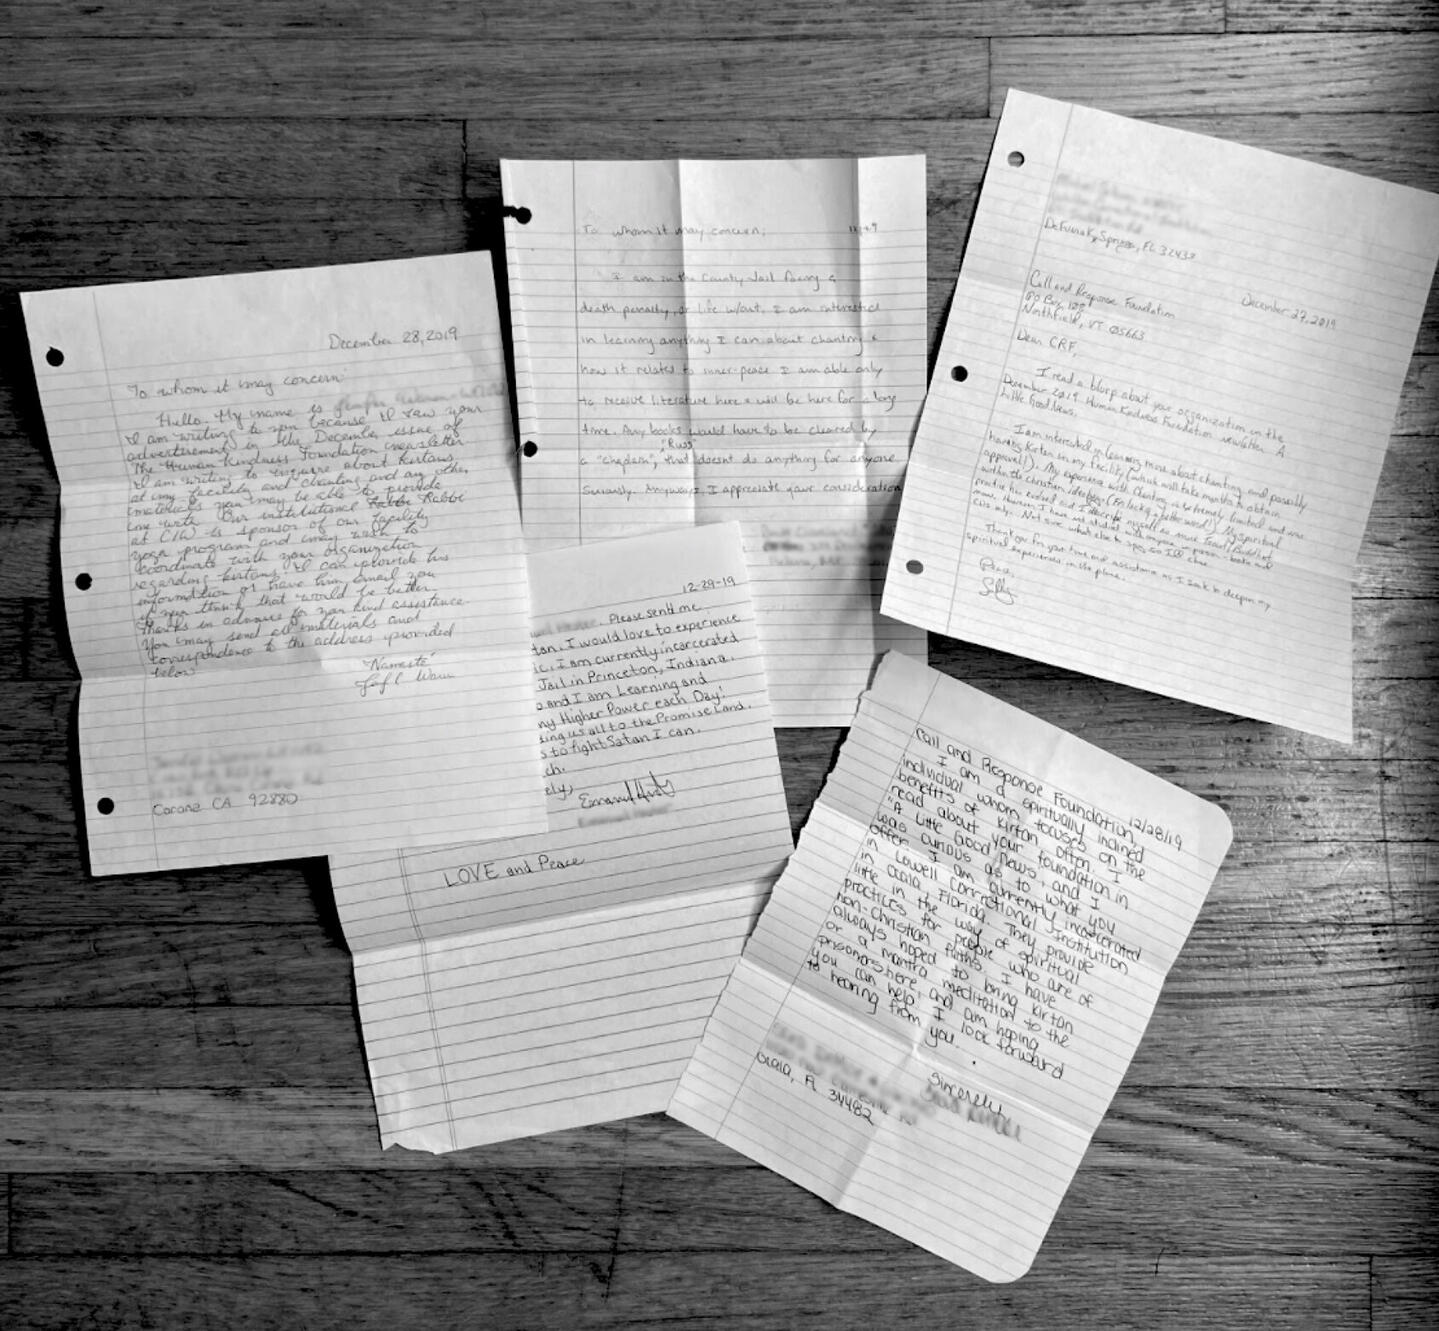 December 28, 2019
To whom it may concern:
Hello. My name is
I am writing to you because I saw your
advertisement in the December issue of
The Human Kindness Foundation newsletter.
I am writing to inquire about kirtans
at my facility and chanting and any other
materials you may be able to provide
me with. Our institutional Rabbi
at CIW is sponsor of our facility
yoga program and may wish to
coordinate with your organization
regarding kirtans. I can provide his
information or have him email you
if you think that would be better.
Thanks in advance for your kind assistance.
You may send all materials and
correspondence to the address provided
below
"Namaste"
Corona CA 92880
To whom it may concern;
I am in the County Jail facing a
death penalty, or life w/out. I am interested
in learning anything I can about chanting &
how it related to inner-peace I am able only
to receive literature here & will be here for a long
time. Any books would have to be cleared by
"Russ"
a "chaplain", that doesnt do anything for anyone
Seriously. Anyways, I appreciate your consideration
DeFuniak Springs, FL 32433
December 27, 2019
Call and Response Foundation
PO Box 108
Northfield, VT 05663
Dear CRF,
I read a blurp about your organization in the
December 2019 Human Kindness Foundation newsletter A
Little Good News.
I am interested in learning more about chanting and possibly
having Kirtan in my facility (which will take months to obtain
approval!). My experience with chanting is extremely limited and was
within the christian ideology (For lack of a better word!). My spiritual
practice has evolved and I describe myself as more
now. However, I have not studied with anyone in person - books and
CDs only. Not sure what else to say, so I'll close.
Thank you for your time and assistance as I seek to deepen my
spiritual experience in this place.
Peace,
12-29-19
Please send me
I would love to experience
I am currently incarcerated
Jail in Princeton, Indiana.
and I am Learning and
my Higher Power each Day!
us all to the Promise Land.
to fight Satan I can.
LOVE and Peace
12/28/19
Call and Response Foundation,
I am a spiritually inclined
individual whom focuses on the
benefits of kirtan often. I
read about your foundation in
"A Little Good News", and I
was curious as to what you
offer. I am currently incarcerated
in Lowell Correctional Institution
in Ocala, Florida. They provide
little in the way of spiritual
practices for people who are of
non-christian faiths. I have
always hoped to bring kirtan
or a mantra meditation to the
prisoners here, and am hoping
you can help! I look forward
to hearing from you.
Sincerely,
Ocala, FL 34482